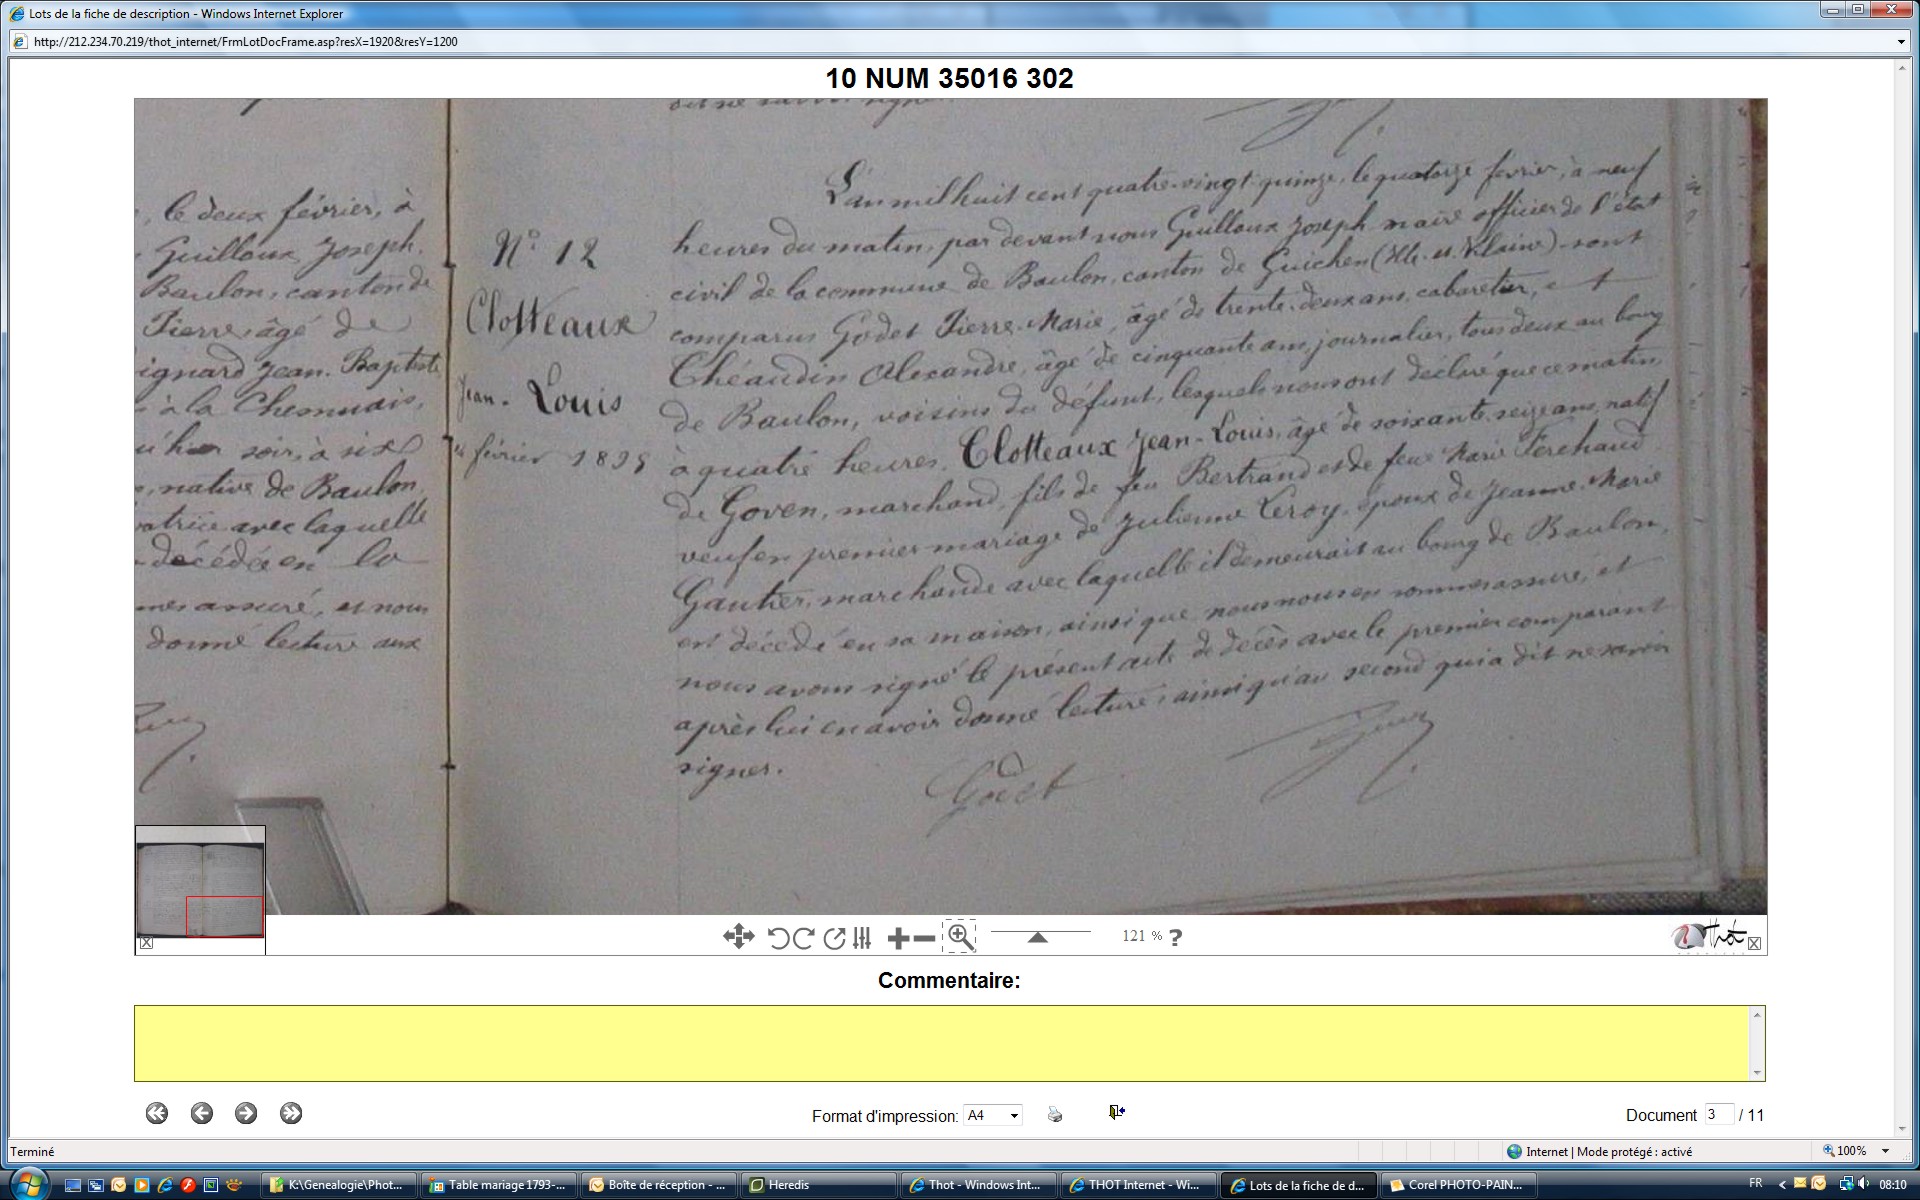 Lots de la fiche de description - Windows Internet Explorer
http://212.234.70.219/thot_internet/FrmLotDocFrame.asp?resX=1920&resY=1200
10 NUM 35016 302
, le deux février, à
Guilloux Joseph
Baulon, canton de
Pierre, âgé de
ignard Jean-Baptiste
à la Chesnuais,
soir, à six
, native de Baulon,
avec laquelle
décédée en la
mes assuré, et nous
donné lecture aux
N° 12
Clotteaux
Jean-Louis
14 février 1895
L'an mil huit cent quatre-vingt-quinze, le quatorze février, à neuf
heures du matin, par devant nous Guilloux Joseph maire officier de l'état
civil de la commune de Baulon, canton de Guichen (Ille-et-Vilaine) sont
comparus Godet Pierre-Marie, âgé de trente-deux ans, cabaretier, et
Chéaudin Alexandre, âgé de cinquante ans, journalier, tous deux au bourg
de Baulon, voisins du défunt, lesquels nous ont déclaré que ce matin,
à quatre heures, Clotteaux Jean-Louis, âgé de soixante-seize ans, natif
de Goven, marchand, fils de feu Bertrand et de feue Marie Ferchaud
veuf en premier mariage de Julienne Leroy, époux de Jeanne-Marie
Gautier, marchande avec laquelle il demeurait au bourg de Baulon,
est décédé en sa maison, ainsi que nous nous en sommes assuré, et
nous avons signé le présent acte de décès avec le premier comparant
après lui en avoir donné lecture, ainsi qu'au second qui a dit ne savoir
signer.
Godet
121 % ?
Thot
Commentaire:
Format d'impression: A4
Document 3 / 11
Terminé
Internet | Mode protégé : activé
100%
K:\Genealogie\Phot...
Table mariage 1793-...
Boîte de réception - ...
Heredis
Thot - Windows Int...
THOT Internet - Wi...
Lots de la fiche de d...
Corel PHOTO-PAIN...
FR
08:10